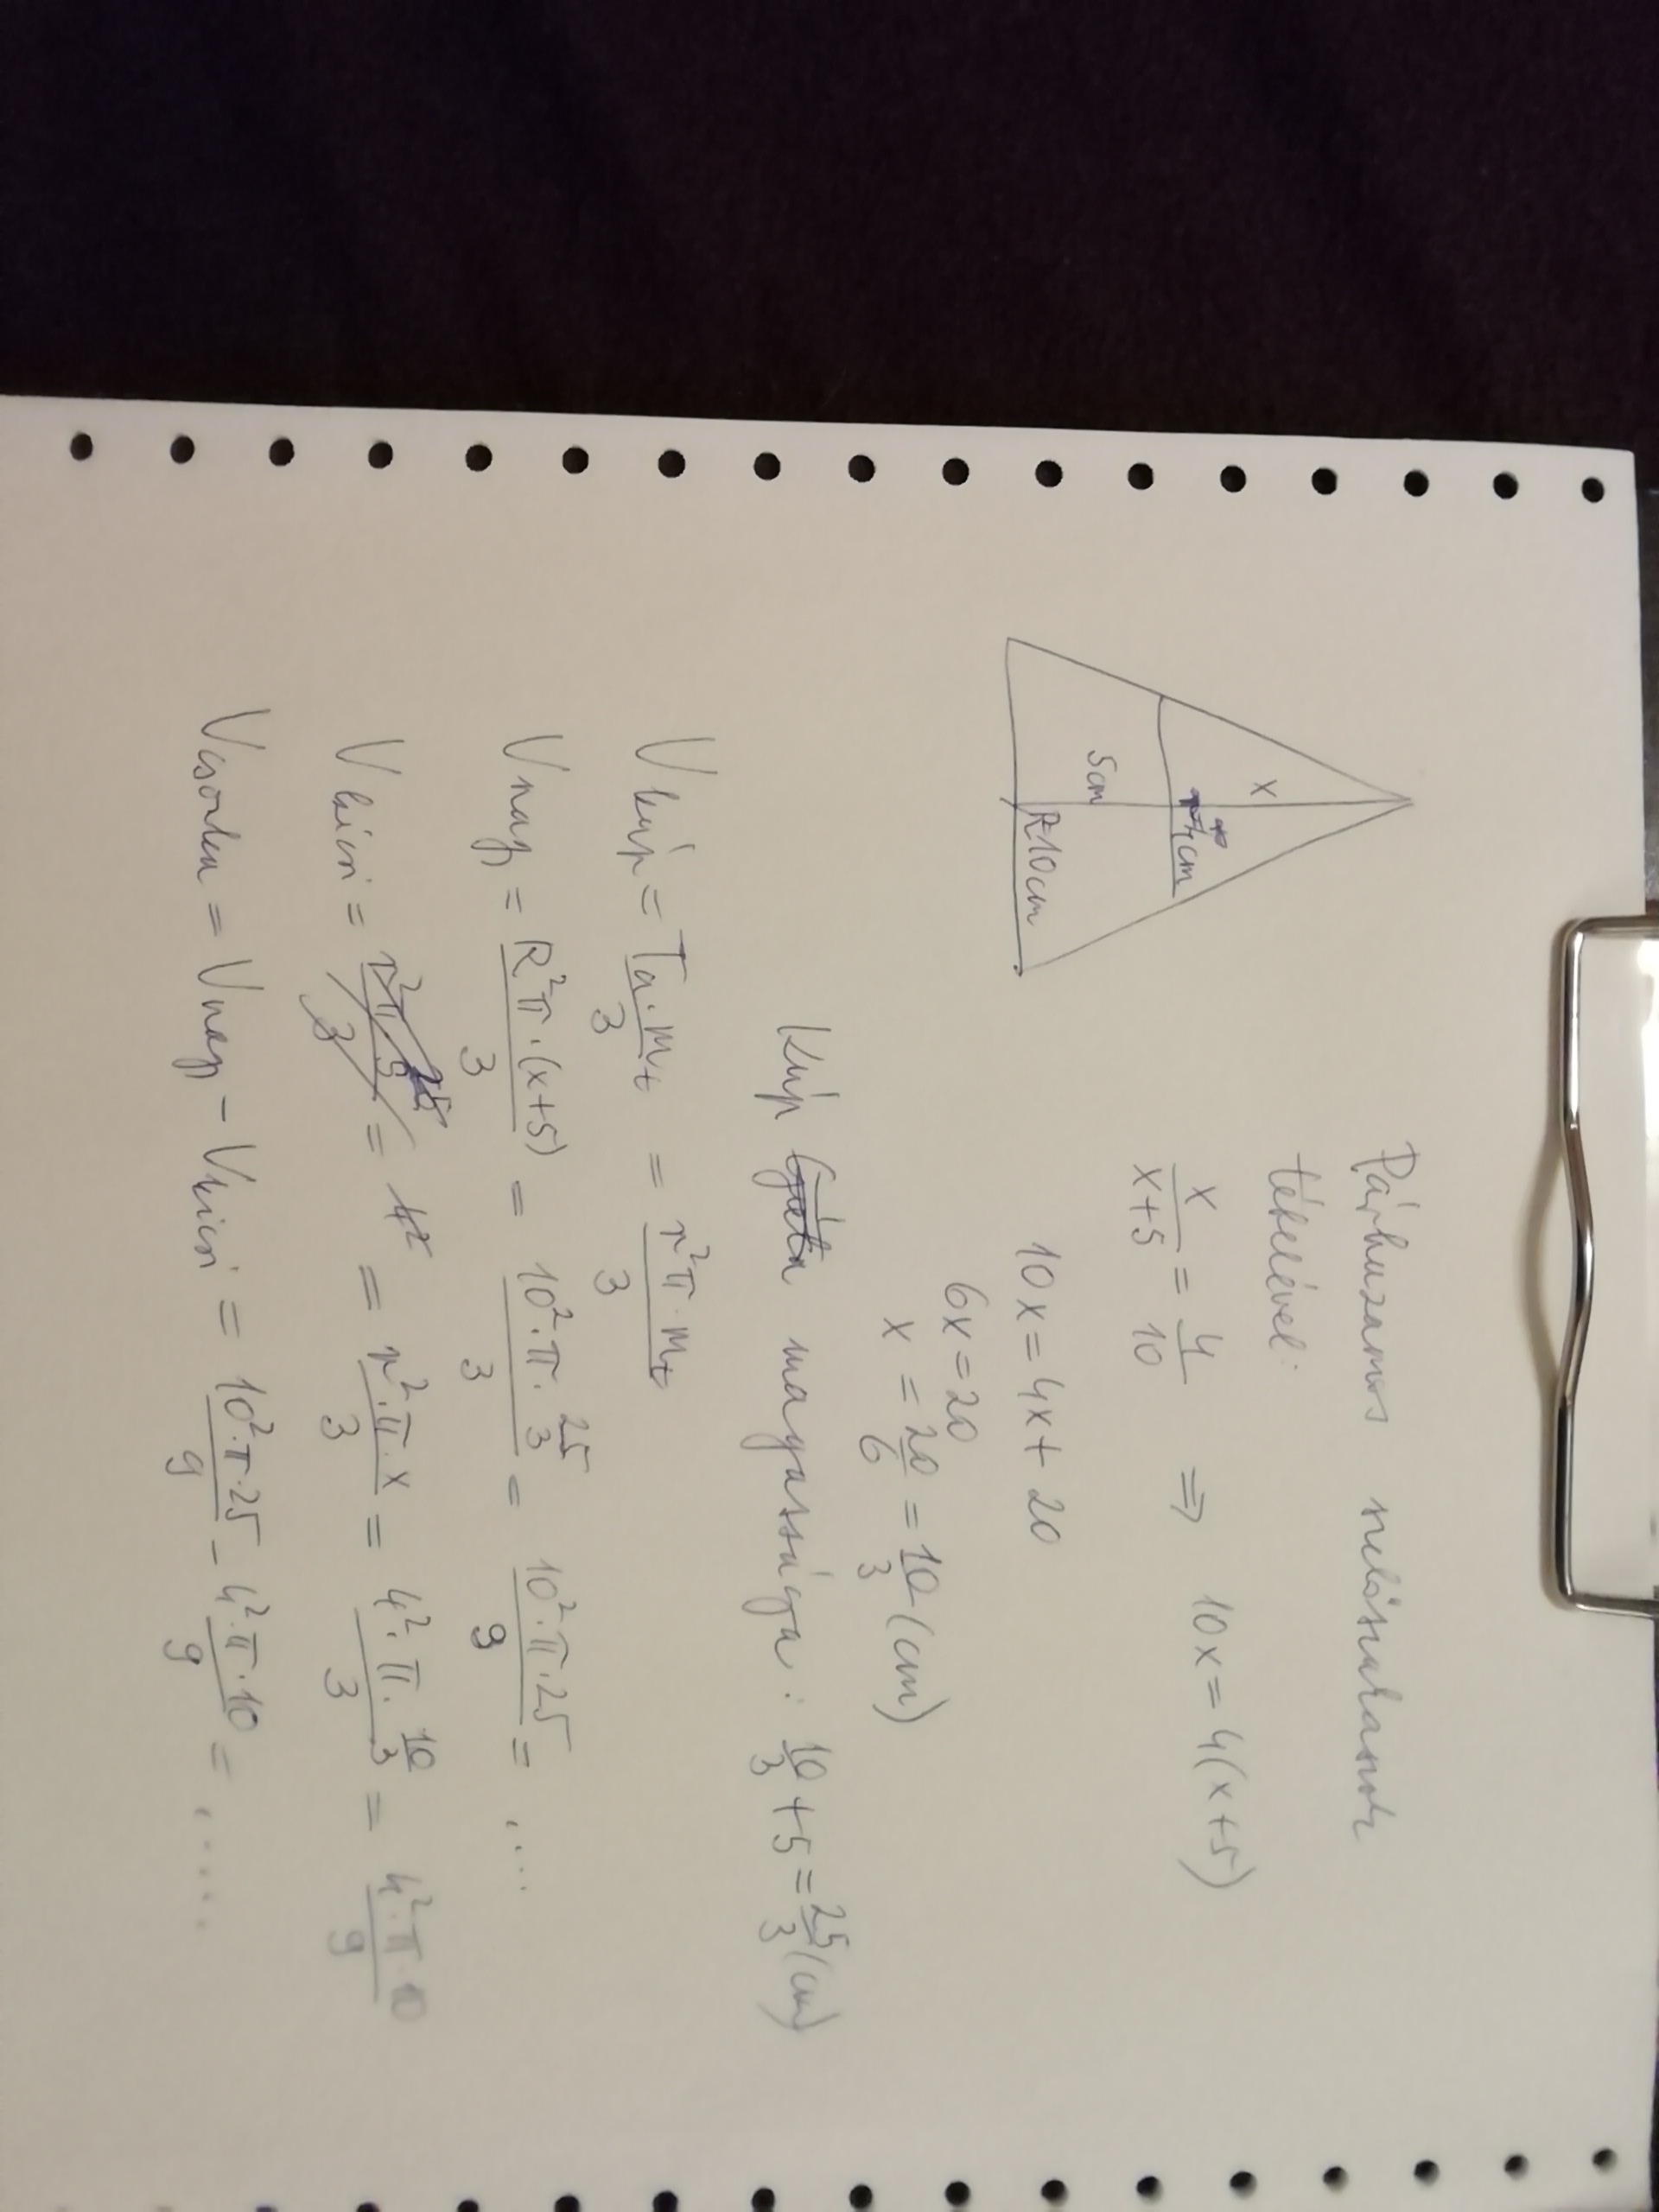 Párhuzamos szelőszakaszok
tételével:
x/(x+5) = 4/10 ⇒ 10x = 4(x+5)
10x = 4x + 20
6x = 20
x = 20/6 = 10/3 (cm)
x
r=4cm
5cm
R10cm
Kúp magassága: 10/3 + 5 = 25/3 (cm)
V kúp = (Ta·mt)/3 = (r²π·mt)/3
V nagy = (R²π·(x+5))/3 = (10²·π·25/3)/3 = (10²·π·25)/9 = ...
V kicsi = = (r²·π·x)/3 = (4²·π·10/3)/3 = (4²·π·10)/9
V csonka = V nagy - V kicsi = (10²·π·25)/9 - (4²·π·10)/9 = ....